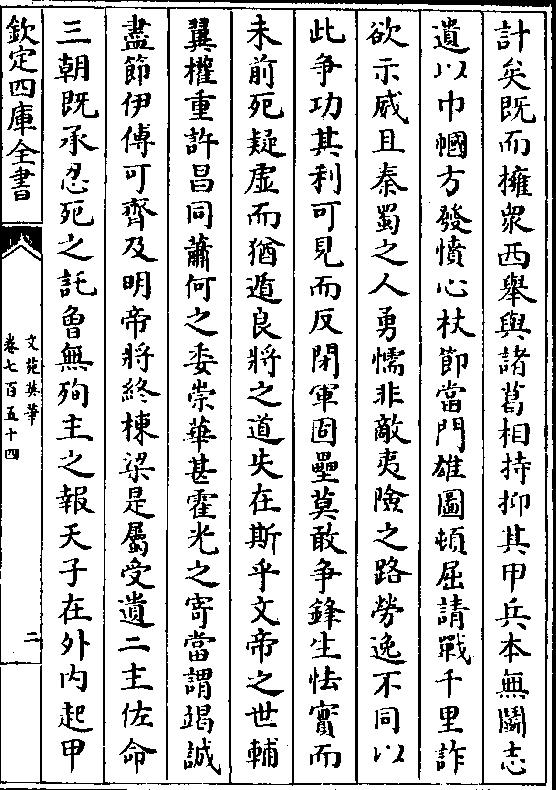 計矣既而擁衆西舉與諸葛相持抑其甲兵本無鬭志
遺以巾幗方發憤心杖節當門雄圖頓屈請戰千里詐
欲示威且秦蜀之人勇懦非敵夷險之路勞逸不同以
此争功其利可見而反閉軍固壘莫敢争鋒生怯實而
未前死疑虛而猶遁良將之道失在斯乎文帝之世輔
翼權重許昌同蕭何之委崇華甚霍光之寄當謂竭誠
盡節伊傅可齊及明帝將終棟梁是屬受遺二主佐命
三朝既承忍死之託曾無殉主之報天子在外内起甲
欽定四庫全書
文苑英華
卷七百五十四
二